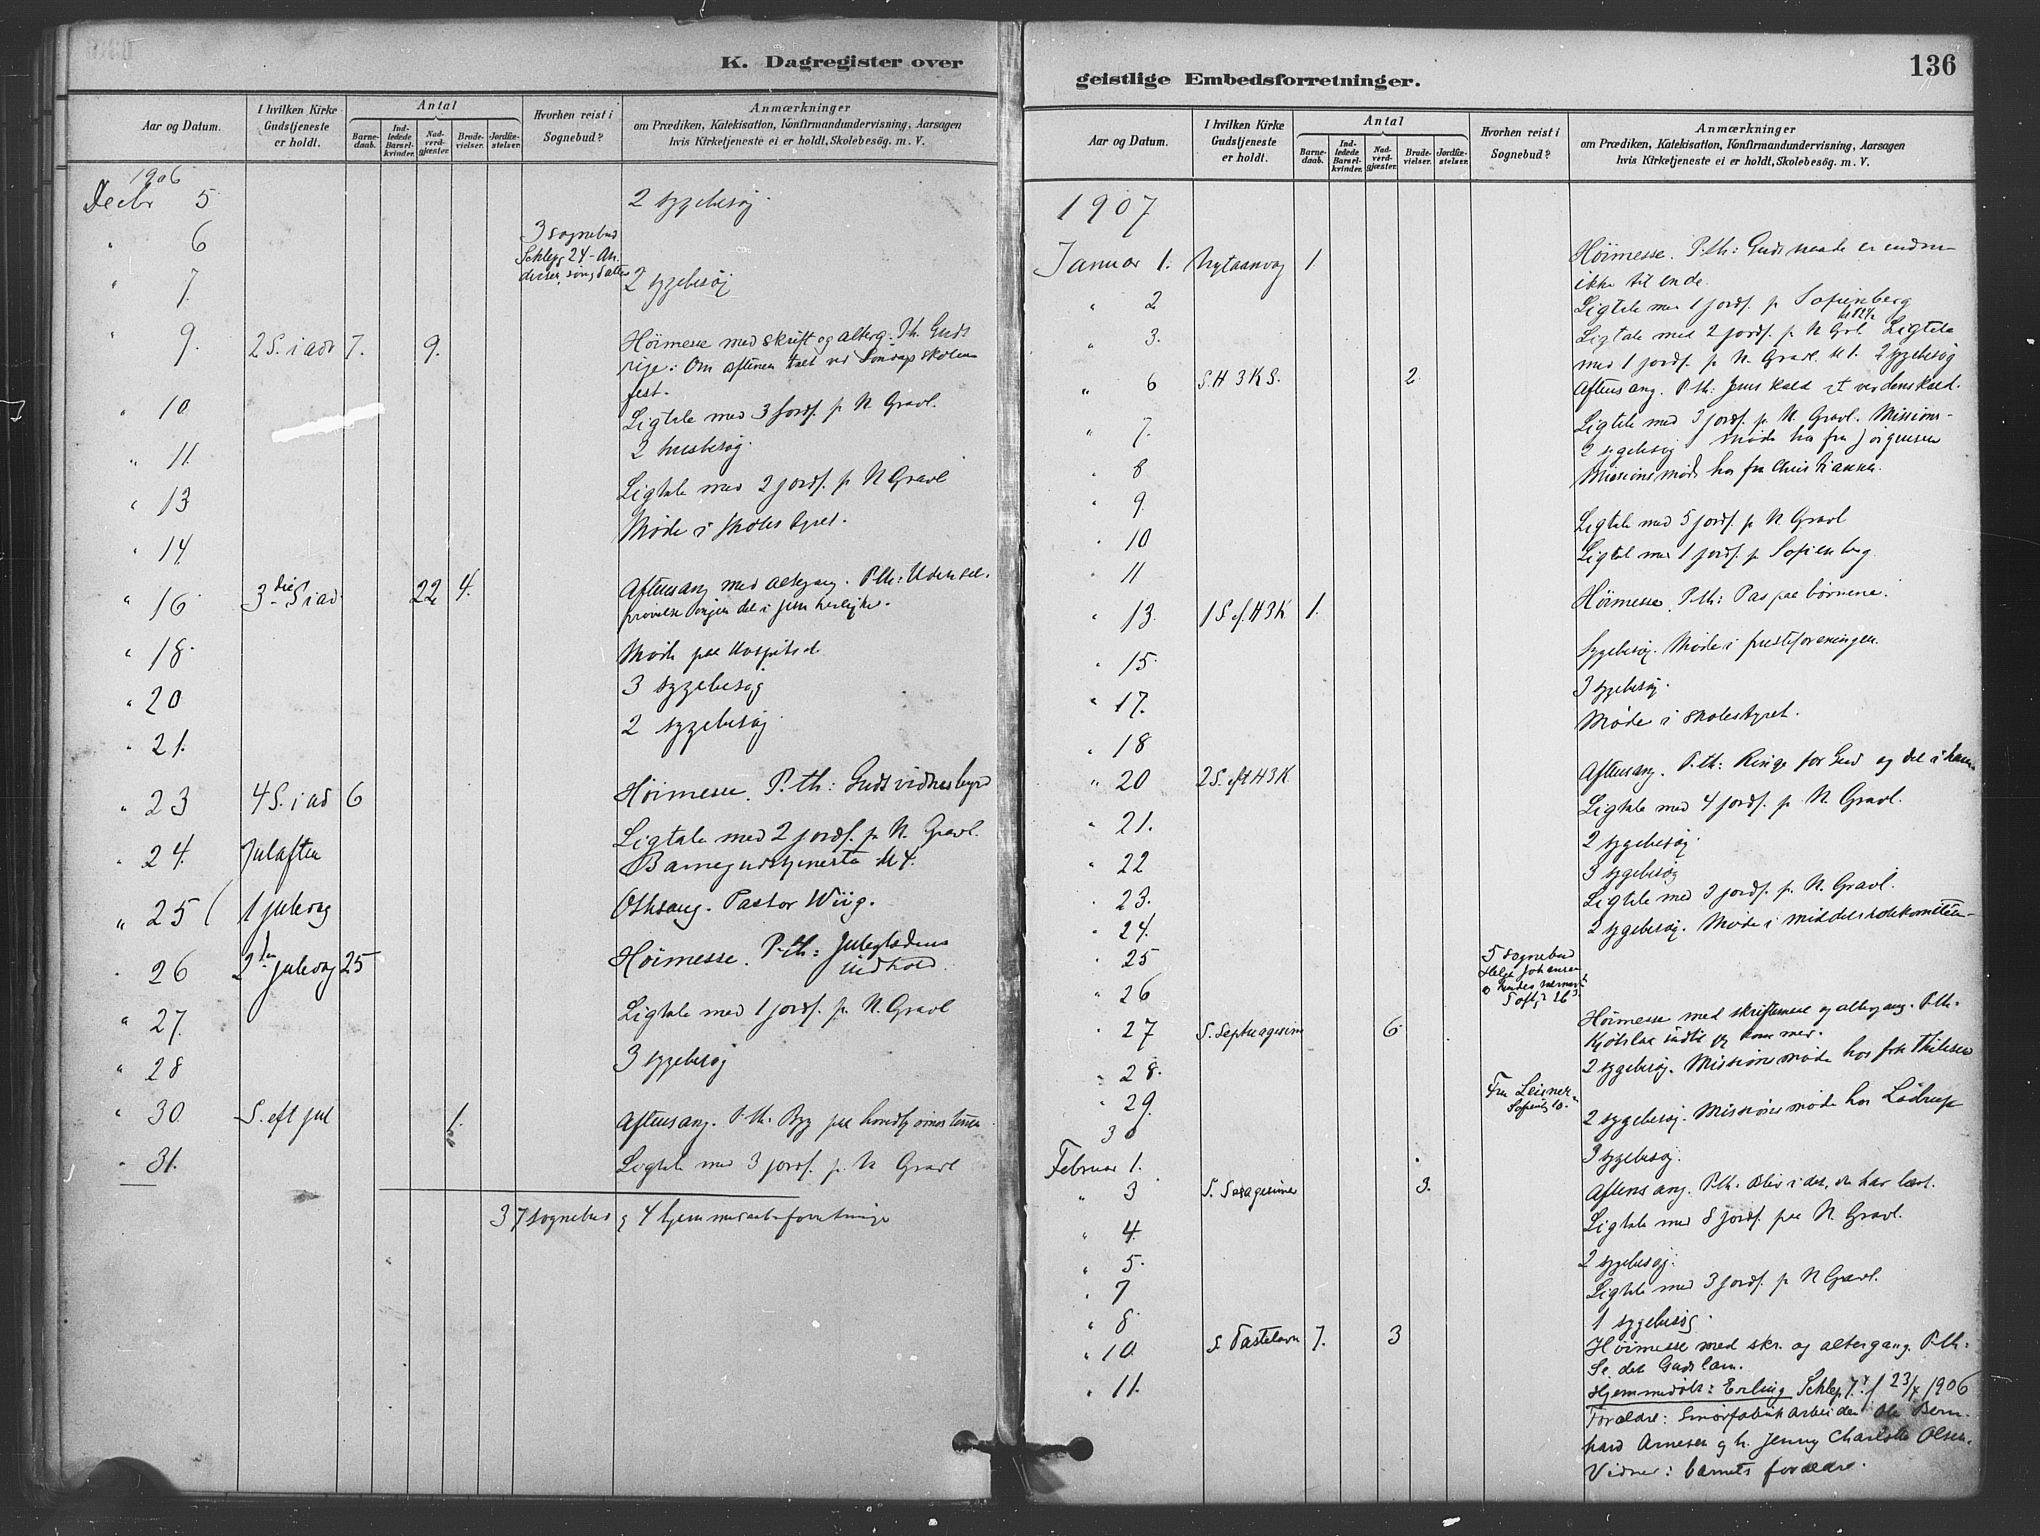 K. Dagregister over
Aar og Datum.
I hvilken Kirke Gudstjeneste er holdt.
Antal
Barnedaab.
Indledede Barselkvinder.
Nadverdgjæster.
Brudevielser.
Jordfæstelser.
Hvorhen reist i Sognebud?
Anmærkninger
om Prædiken, Katekisation, Konfirmandundervisning, Aarsagen
hvis Kirketjeneste ei er holdt, Skolebesög. m. V.
1906
Decbr 5 2 sygebesøg
" 6 3 sognebud
Schlepg 24 - An
" 7. 2 sygebesøg
" 9. 2 S. i adv 7. 9. Høimesse med skrift og alterg. P. th. Guds
rige: Om aftenen talt ved Søndags skolens
fest.
" 10 Ligtale med 3 jordf. p N. Gravl.
" 11. 2 husbesøg.
" 13 Ligtale med 2 jordf. p N Gravl
" 14 Møde i skolestyret.
" 16. 3die S i ad 22 4. Aftensang med altergang. P. th:
" 18. Møde paa Hospitalet
" 20 3 sygebesøg
" 21. 2 sygebesøg
" 23 4 S. i ad 6 Høimesse. P. th: Guds vidnesbyrd
" 24. Julaften Ligtale med 2 jordf. p N. Gravl.
Barnegudstjeneste kl 4.
" 25 1 juledag Othsang. Pastor Wiig.
" 26 2den juledag 25 Høimesse. P. th: Juleglædens
indhold.
" 27. Ligtale med 1 jordf. p. N. Gravl
" 28 3 sygebesøg
" 30. S. eft jul 1. Aftensang. P. th. Byg paa
" 31. Ligtale med 3 jordf. p. N Gravl
37 sognebud og 4 hjemmedaabsforretninger
geistlige Embedsforretninger.
136
Aar og Datum.
I hvilken Kirke Gudstjeneste er holdt.
Antal
Barnedaab.
Indledede Barselkvinder.
Nadverdgjæster.
Brudevielser.
Jordfæstelser.
Hvorhen reist i Sognebud?
Anmærkninger
om Prædiken, Katekisation, Konfirmandundervisning, Aarsagen
hvis Kirketjeneste ei er holdt, Skolebesög. m. V.
1907
Januar 1. Nytaarsdag 1. Høimesse. P. th: Guds naade er endnu
ikke til ende.
" 2 Ligtale med 1 jordf. p Sofienberg
" 3. Ligtale med 2 jordf. p N Grl Ligtale
med 1 jordf. p N. Gravl. kl 1. 2 sygebesøg
" 6 S. H 3 K S. 2. Aftensang. P. th: Jesu kald et verdenskald.
" 7. Ligtale med 3 jordf. p N. Gravl. Missions-
2 sygebesøg møde hos fru Jørgensen
" 8 Missionsmøde hos fru Christiansen.
" 9.
" 10 Ligtale med 5 jordf. p N Gravl
" 11 Ligtale med 1 jordf. p Sofienberg
" 13. 1 S ef. H 3 K 1. Høimesse. P. th: Pas paa børnene.
" 15. Sygebesøg. Møde i presteforeningen.
" 17. 3 sygebesøg.
" 18 Møde i skolestyret.
" 20 2 S. eft H 3 K Aftensang. P. th: Ringe for Gud og det i
" 21. Ligtale med 4 jordf. p N. Gravl.
" 22 2 sygebesøg.
" 23. 3 sygebesøg
" 24. Ligtale med 3 jordf. p N. Gravl.
" 25 2 sygebesøg. Møde i middelskolekomiteen
" 26 5 sognebud
Helga Johansen
" 27 S. Septuagesima 6. Høimesse med skriftemaal og altergang. P. th.
" 28. 2 sygebesøg. Missionsmøde hos frk Thilesen
" 29. Fru Leisner
30 2 sygebesøg. Missionsmøde hos Lødrup
Februar 1. 3 sygebesøg.
" 3 S. Sexagesima 3. Aftensang. P. th. Bliv i det, du har lært.
" 4. Ligtale med 8 jordf. paa N. Gravl.
" 5. 2 sygebesøg.
" 7 Ligtale med 3 jordf. p N Gravl.
" 8 1 sygebesøg.
" 10. S Fastelavn 7. 3 Høimesse med skr. og altergang. P. th:
Se det Guds Lam.
" 11. Hjemmedøbt: Erling Schlepg. 7. f 23/7 1906
Forældre: Smørfabrikarbeider Ole Bern-
hard Arnesen og h. Jenny Charlotte Olsen.
Vidner: barnets forældre.